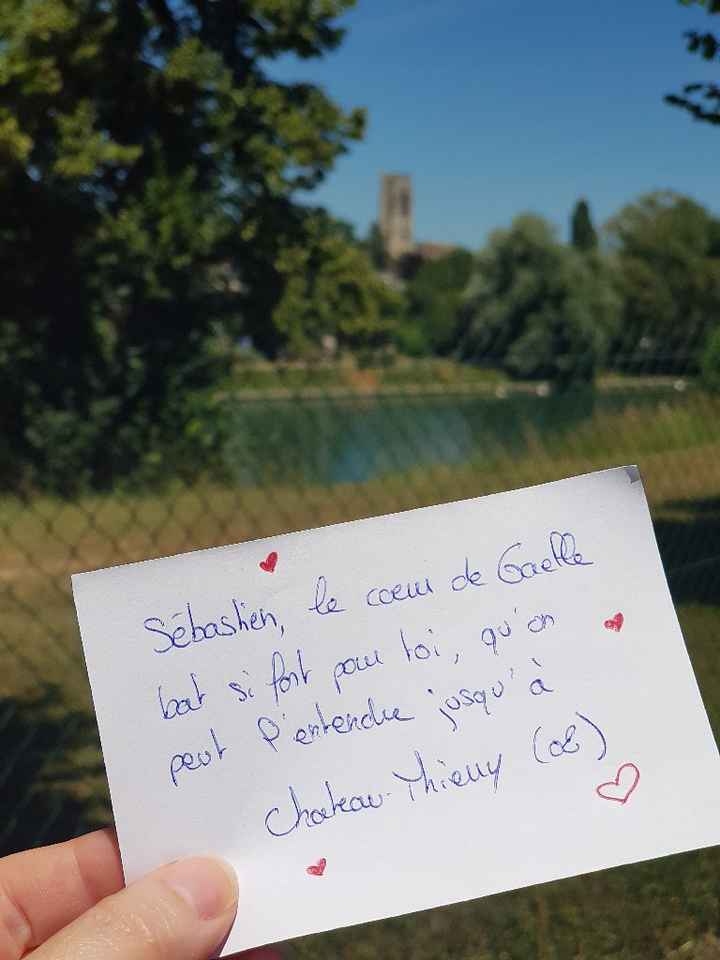 Sébastien, le coeur de Gaelle
bat si fort pour toi, qu'on
peut l'entendre jusqu'à
Chateau-Thierry (02)